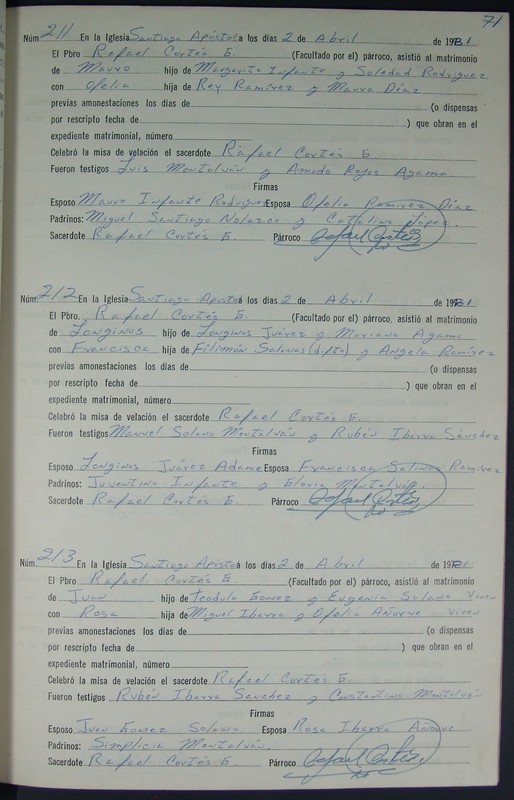 71
Núm. 211 En la Iglesia Santiago Apóstol a los días 2 de Abril de 1981
El Pbro Rafael Cortés G. (Facultado por el) párroco, asistió al matrimonio
de Mauro hijo de Margarito Infante y Soledad Rodriguez
con Ofelia hija de Rey Ramírez y Maura Díaz
previas amonestaciones los días de (o dispensas
por rescripto fecha de ) que obran en el
expediente matrimonial, número
Celebró la misa de velación el sacerdote Rafael Cortés G.
Fueron testigos Luis Montalván y Amado Rojas Agama
Firmas
Esposo Mauro Infante Rodriguez Esposa Ofelia Ramirez Díaz
Padrinos: Miguel Santiago y Catalina López.
Sacerdote Rafael Cortés G. Párroco
Núm. 212 En la Iglesia Santiago Apóstol a los días 2 de Abril de 1981
El Pbro. Rafael Cortés G. (Facultado por el) párroco, asistió al matrimonio
de Longinos hijo de Longinos Juárez y Mariana Agama
con Francisca hija de Filimón Salinas (difto) y Angela Ramírez
previas amonestaciones los días de (o dispensas
por rescripto fecha de ) que obran en el
expediente matrimonial, número
Celebró la misa de velación el sacerdote Rafael Cortés G.
Fueron testigos Manuel Solano Montalván y Rubén Ibarra Sánchez
Firmas
Esposo Longinos Juárez Adame Esposa Francisca Salinas Ramirez
Padrinos: Juventino Infante y Montalván.
Sacerdote Rafael Cortés G. Párroco
Núm. 213 En la Iglesia Santiago Apóstol a los días 2 de Abril de 1981
El Pbro Rafael Cortés G (Facultado por el) párroco, asistió al matrimonio
de Juan hijo de Teodulo Gomez y Eugenia Solano Viven
con Rosa hija de Miguel Ibarra y Ofelia Añorve Viven
previas amonestaciones los días de (o dispensas
por rescripto fecha de ) que obran en el
expediente matrimonial, número
Celebró la misa de velación el sacerdote Rafael Cortés G.
Fueron testigos Rubén Ibarra Sánchez y Constantino Montalván
Firmas
Esposo Juan Gomez Solano Esposa Rosa Ibarra Añorve
Padrinos: Simplicia Montalván.
Sacerdote Rafael Cortés G. Párroco